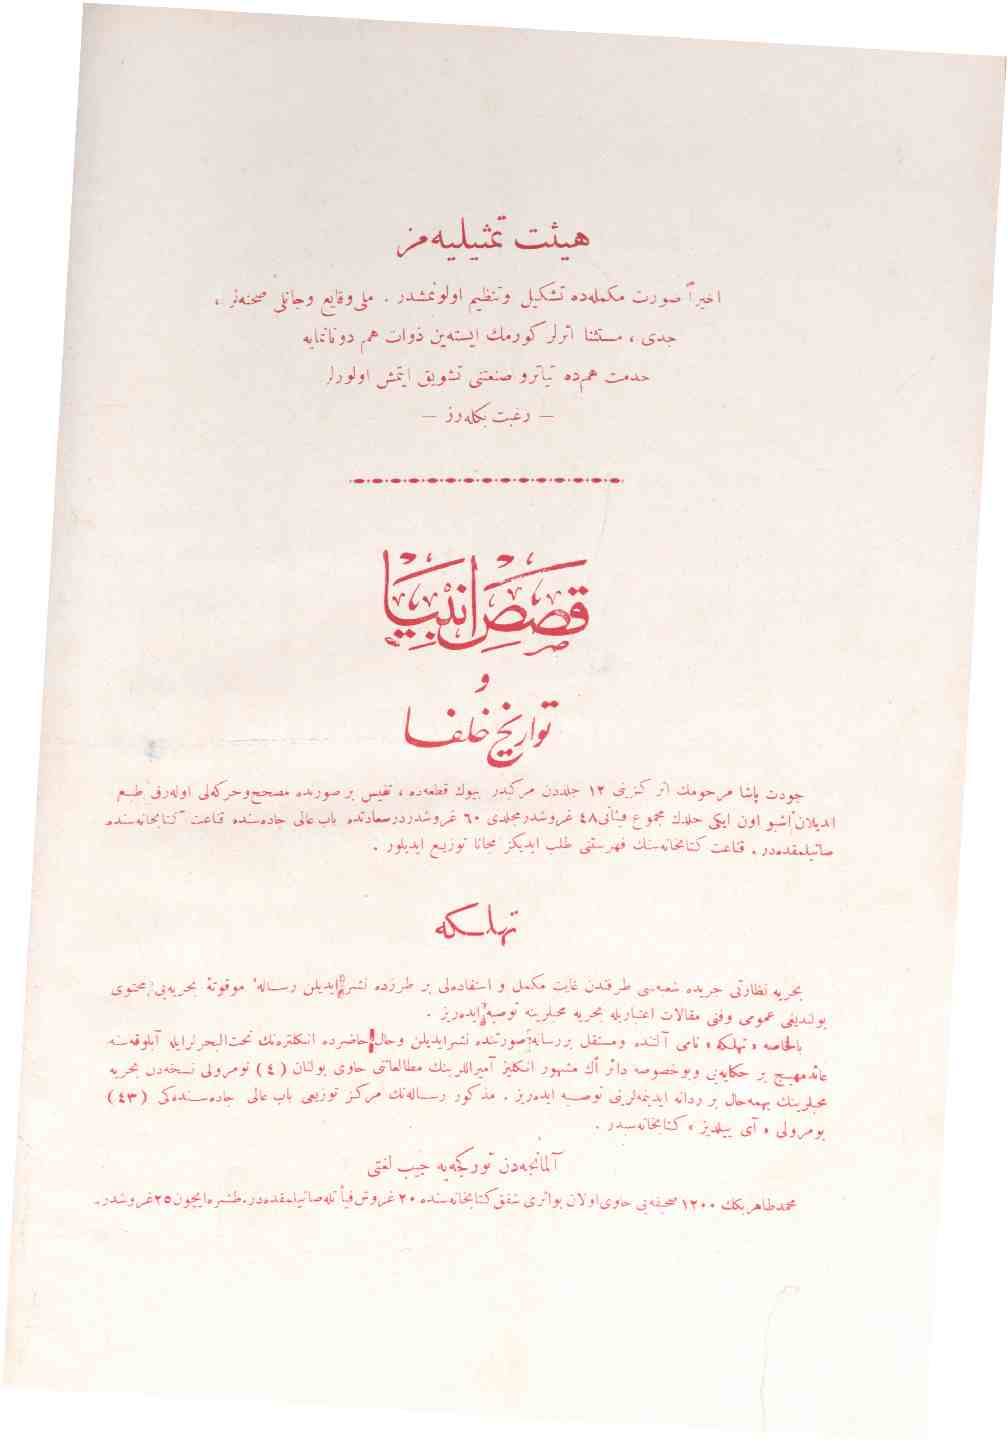 هیئت تمثیلیه‌مز
اخیراً صورت مکمله‌ده تشکیل وتنظیم اولونمشدر . ملی وقایع وجانلی صحنه‌لر ،
جدی ، مستثنا اثرلر کورمك ایسته‌ین ذوات هم دونانمایه
خدمت هم‌ده تیاترو صنعتنی تشویق ایتمش اولورلر
— رغبت بکله‌رز —
قصص انبیا
و
تواریخ خلفا
جودت پاشا مرحومك اثر کزینی ۱۲ جلددن مرکبدر بیوك قطعه‌ده ، نفیس بر صورتده مصحح وحرکه‌لی اوله‌رق طبع
ایدیلان اشبو اون ایکی جلدك مجموع فیئاتی ۴۸ غروشدر مجلدی ۶۰ غروشدر درسعادتده باب عالی جاده‌سنده قناعت کتابخانه‌سنده
صاتیلمقده‌در . قناعت کتابخانه‌سنك فهرستنی طلب ایدیکز مجانا توزیع ایدیلور .
تهلکه
بحریه نظارتی جریده شعبه‌سی طرفندن غایت مکمل و استفاده‌لی بر طرزده نشر ایدیلن رساله‌ موقوتهٔ بحریه‌یی محتوی
بولندیغی عمومی وفنی مقالات اعتباریله بحریه محبلرینه توصیه ایده‌ریز .
بالخاصه « تهلکه » نامی آلتنده ومستقل بر رساله صورتنده نشر ایدیلن وحال حاضرده انکلتره‌نك تحت‌البحرلر ایله آبلوقه‌سنه
عائد مهیج بر حکایه‌یی وبو خصوصه دائر اك مشهور انکلیز آمیراللرینك مطالعاتنی حاوی بولنان (۴) نومرولی نسخه‌دن بحریه
محبلرینك بهمه‌حال بر ردانه ایدینمه‌لرینی توصیه ایده‌ریز . مذکور رساله‌نك مرکز توزیعی باب عالی جاده‌سنده‌کی (۴۳)
نومرولی « آی ییلدیز » کتابخانه‌سیدر .
آلمانجه‌دن تورکجه‌یه جیب لغتی
محمد طاهر بکك ۱۲۰۰ صحیفه‌یی حاوی اولان بو اثری شفق کتابخانه‌سنده ۲۰ غروش فیأتله صاتیلمقده‌در. طشره ایچون ۲۵ غروشدر.